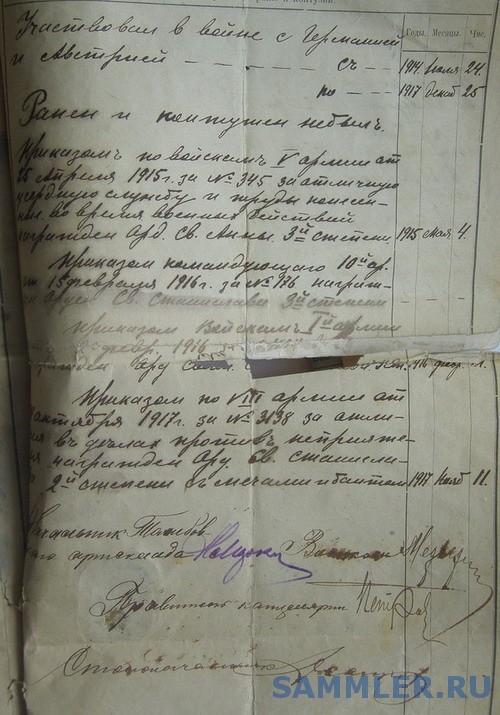 Годы. Месяцы. Чис.
Участвовал в войне с Германией
и Австрией — — — — съ — — 1914 июля 24.
по — — 1917 декаб 25
Ранен и контужен небылъ.
Приказомъ по войскамъ V армии от
25 Апреля 1915 г. за № 345 за отличную
усердную службу и труды понесен-
ные во время военных действий
награжден Орд. Св. Анны 3й степени 1915 Мая 4.
Приказом командующего 10й ар-
15 февраля 1916 г. за № 176 награж-
Св. Станислава 3й степени
Приказом Войскамъ Iй армии
1916
Приказом по VIII армии от
1917 г. за № 3138 за отли-
въ делах противъ неприяте-
награжден Орд. Св. Станисла-
2й степени съ мечами и бантом 1917 Нояб 11.
Начальник Тамбов-
артсклада
Правитель канцелярии
Столоначальник
SAMMLER.RU